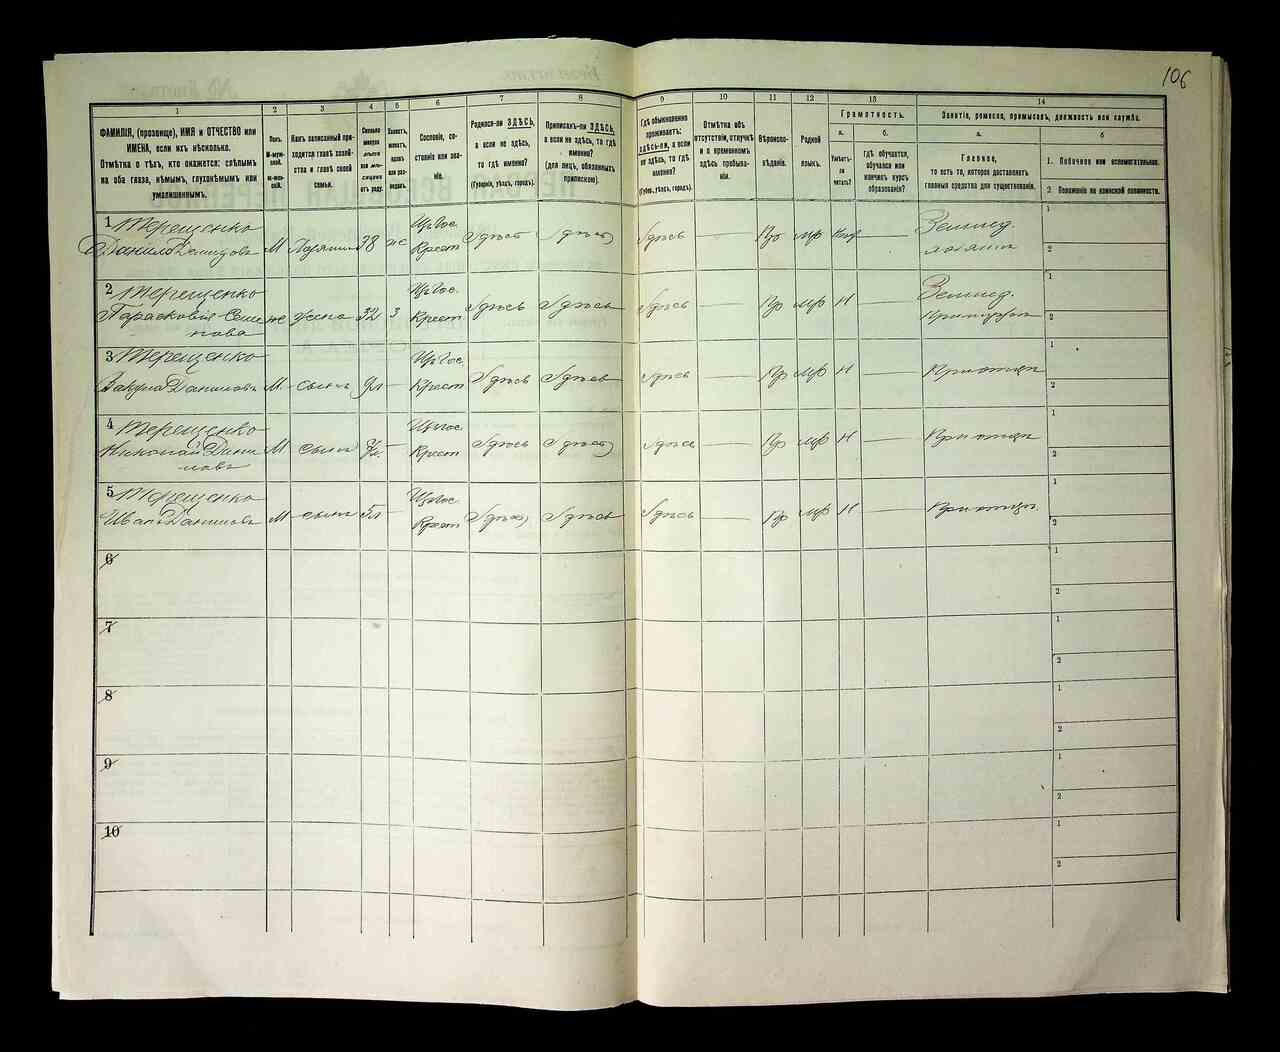 106
1
2
3
4
5
6
7
8
9
10
11
12
13
14
ФАМИЛІЯ, (прозвище), ИМЯ и ОТЧЕСТВО или ИМЕНА, если ихъ нѣсколько.
Отмѣтка о тѣхъ, кто окажется: слѣпымъ на оба глаза, нѣмымъ, глухонѣмымъ или умалишеннымъ.
Полъ.
М-мужской.
Ж-женскій.
Какъ записанный приходится главѣ хозяйства и главѣ своей семьи.
Сколько минуло лѣтъ или мѣсяцевъ отъ роду.
Холостъ, женатъ, вдовъ или разведенъ.
Сословіе, состояніе или званіе.
Родился-ли ЗДѢСЬ, а если не здѣсь, то гдѣ именно?
(Губернія, уѣздъ, городъ).
Приписанъ-ли ЗДѢСЬ, а если не здѣсь, то гдѣ именно?
(для лицъ, обязанныхъ припискою).
Гдѣ обыкновенно проживаетъ: здѣсь-ли, а если не здѣсь, то гдѣ именно?
(Губ., уѣздъ, городъ).
Отмѣтка объ отсутствіи, отлучкѣ и о временномъ здѣсь пребываніи.
Вѣроисповѣданіе.
Родной языкъ.
Грамотность.
а.
б.
Умѣетъ-ли читать?
Гдѣ обучается, обучался или кончилъ курсъ образованія?
Занятіе, ремесло, промыселъ, должность или служба.
а.
б
Главное,
то есть то, которое доставляетъ главныя средства для существованія.
1. Побочное или вспомогательное.
2. Положеніе по воинской повинности.
1 Терещенко
Данило Демидовъ М Хозяинъ 38 же Крест Здѣсь Здѣсь Здѣсь — Пр мр —
Землед.
хозяинъ
1
2
2 Терещенко
Парасковія Семенова же жена 32 з Крест Здѣсь Здѣсь Здѣсь — Пр мр Н —
Землед.
1
2
3 Терещенко
Даниловъ М сынъ 9л - Крест Здѣсь Здѣсь Здѣсь — Пр мр Н —
При отцѣ
1
2
4 Терещенко
Николай Даниловъ М сынъ - Крест Здѣсь Здѣсь Здѣсь — Пр мр Н —
При отцѣ
1
2
5 Терещенко
Иванъ Даниловъ М сынъ - Крест Здѣсь Здѣсь Здѣсь — Пр мр Н —
При отцѣ
1
2
6
1
2
7
1
2
8
1
2
9
1
2
10
1
2